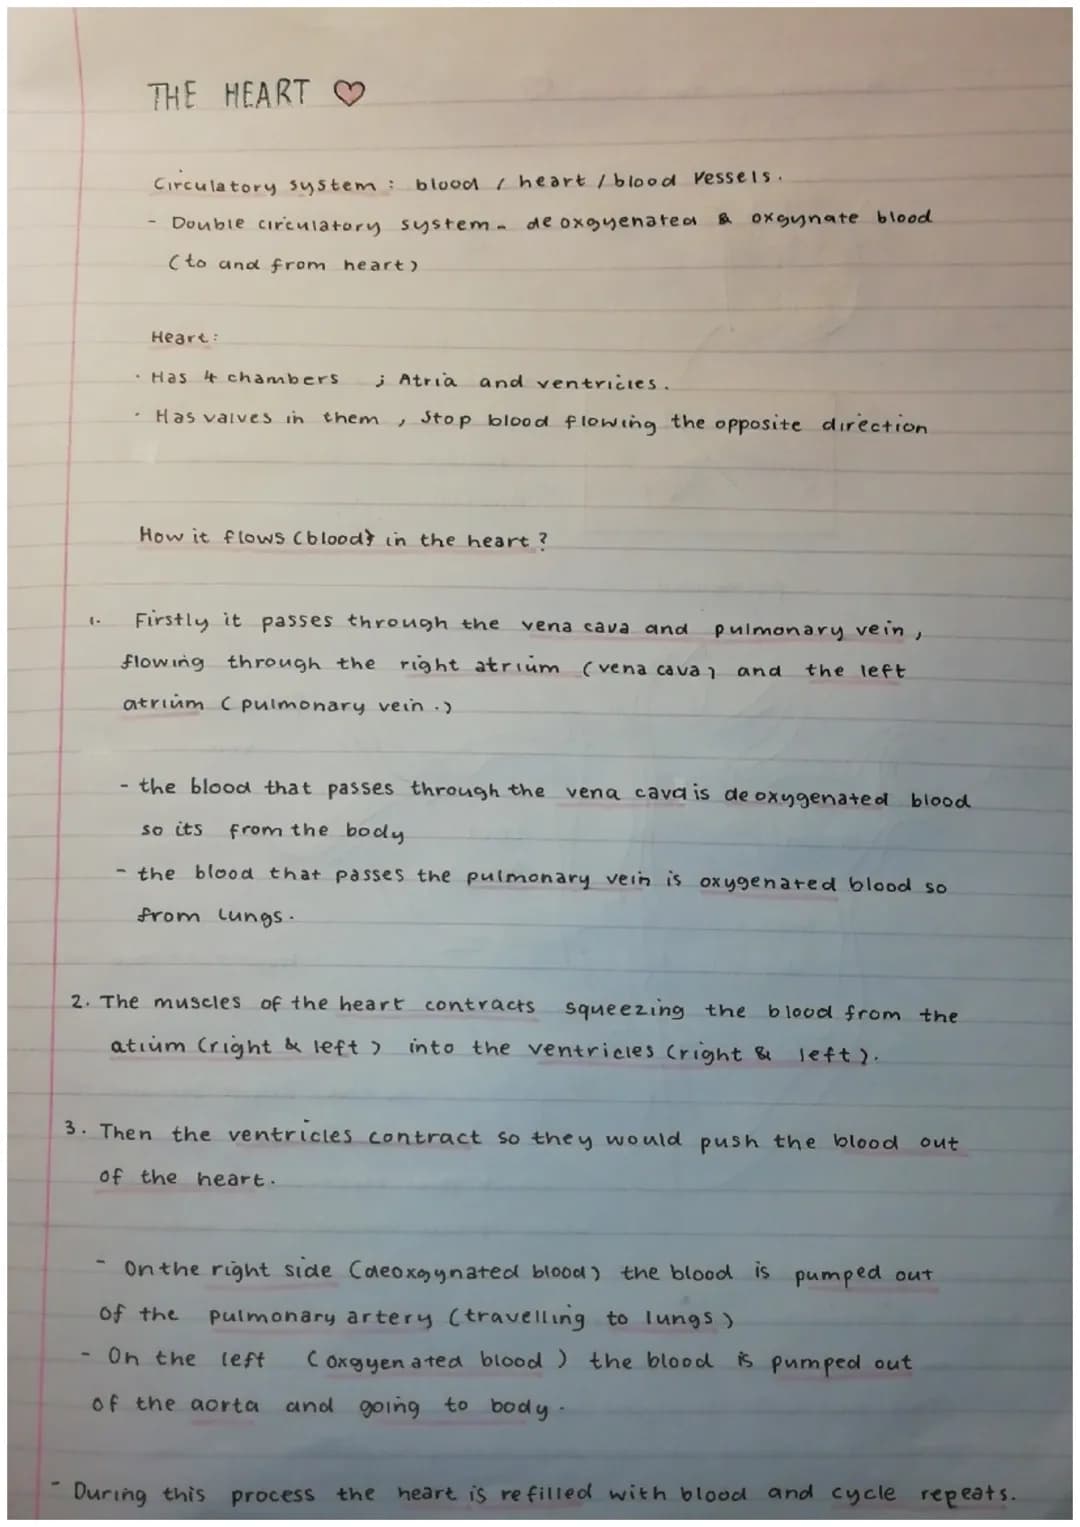 THE HEART
Circulatory system : blood / heart / blood vessels.
- Double circulatory system - deoxgyenated & oxgynate blood
(to and from heart)
Heart:
· Has 4 chambers ; Atria and ventricles.
· Has valves in them , Stop blood flowing the opposite direction
How it flows (blood} in the heart ?
1. Firstly it passes through the vena cava and pulmonary vein ,
flowing through the right atrium (vena cava) and the left
atrium ( pulmonary vein .)
- the blood that passes through the vena cava is deoxygenated blood
so its from the body
- the blood that passes the pulmonary vein is oxygenated blood so
from lungs.
2. The muscles of the heart contracts squeezing the blood from the
atium (right & left ) into the ventricles (right & left ).
3. Then the ventricles contract so they would push the blood out
of the heart.
- On the right side (deoxgynated blood) the blood is pumped out
of the pulmonary artery (travelling to lungs )
- On the left ( oxgyenated blood ) the blood is pumped out
of the aorta and going to body.
- During this process the heart is refilled with blood and cycle repeats.